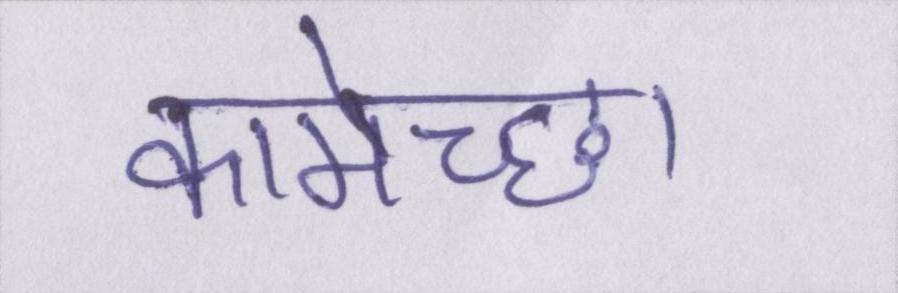 कामेच्छा